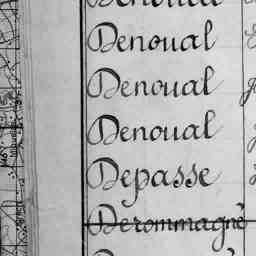 Denoual
Denoual
Denoual
Depasse
Derommagné